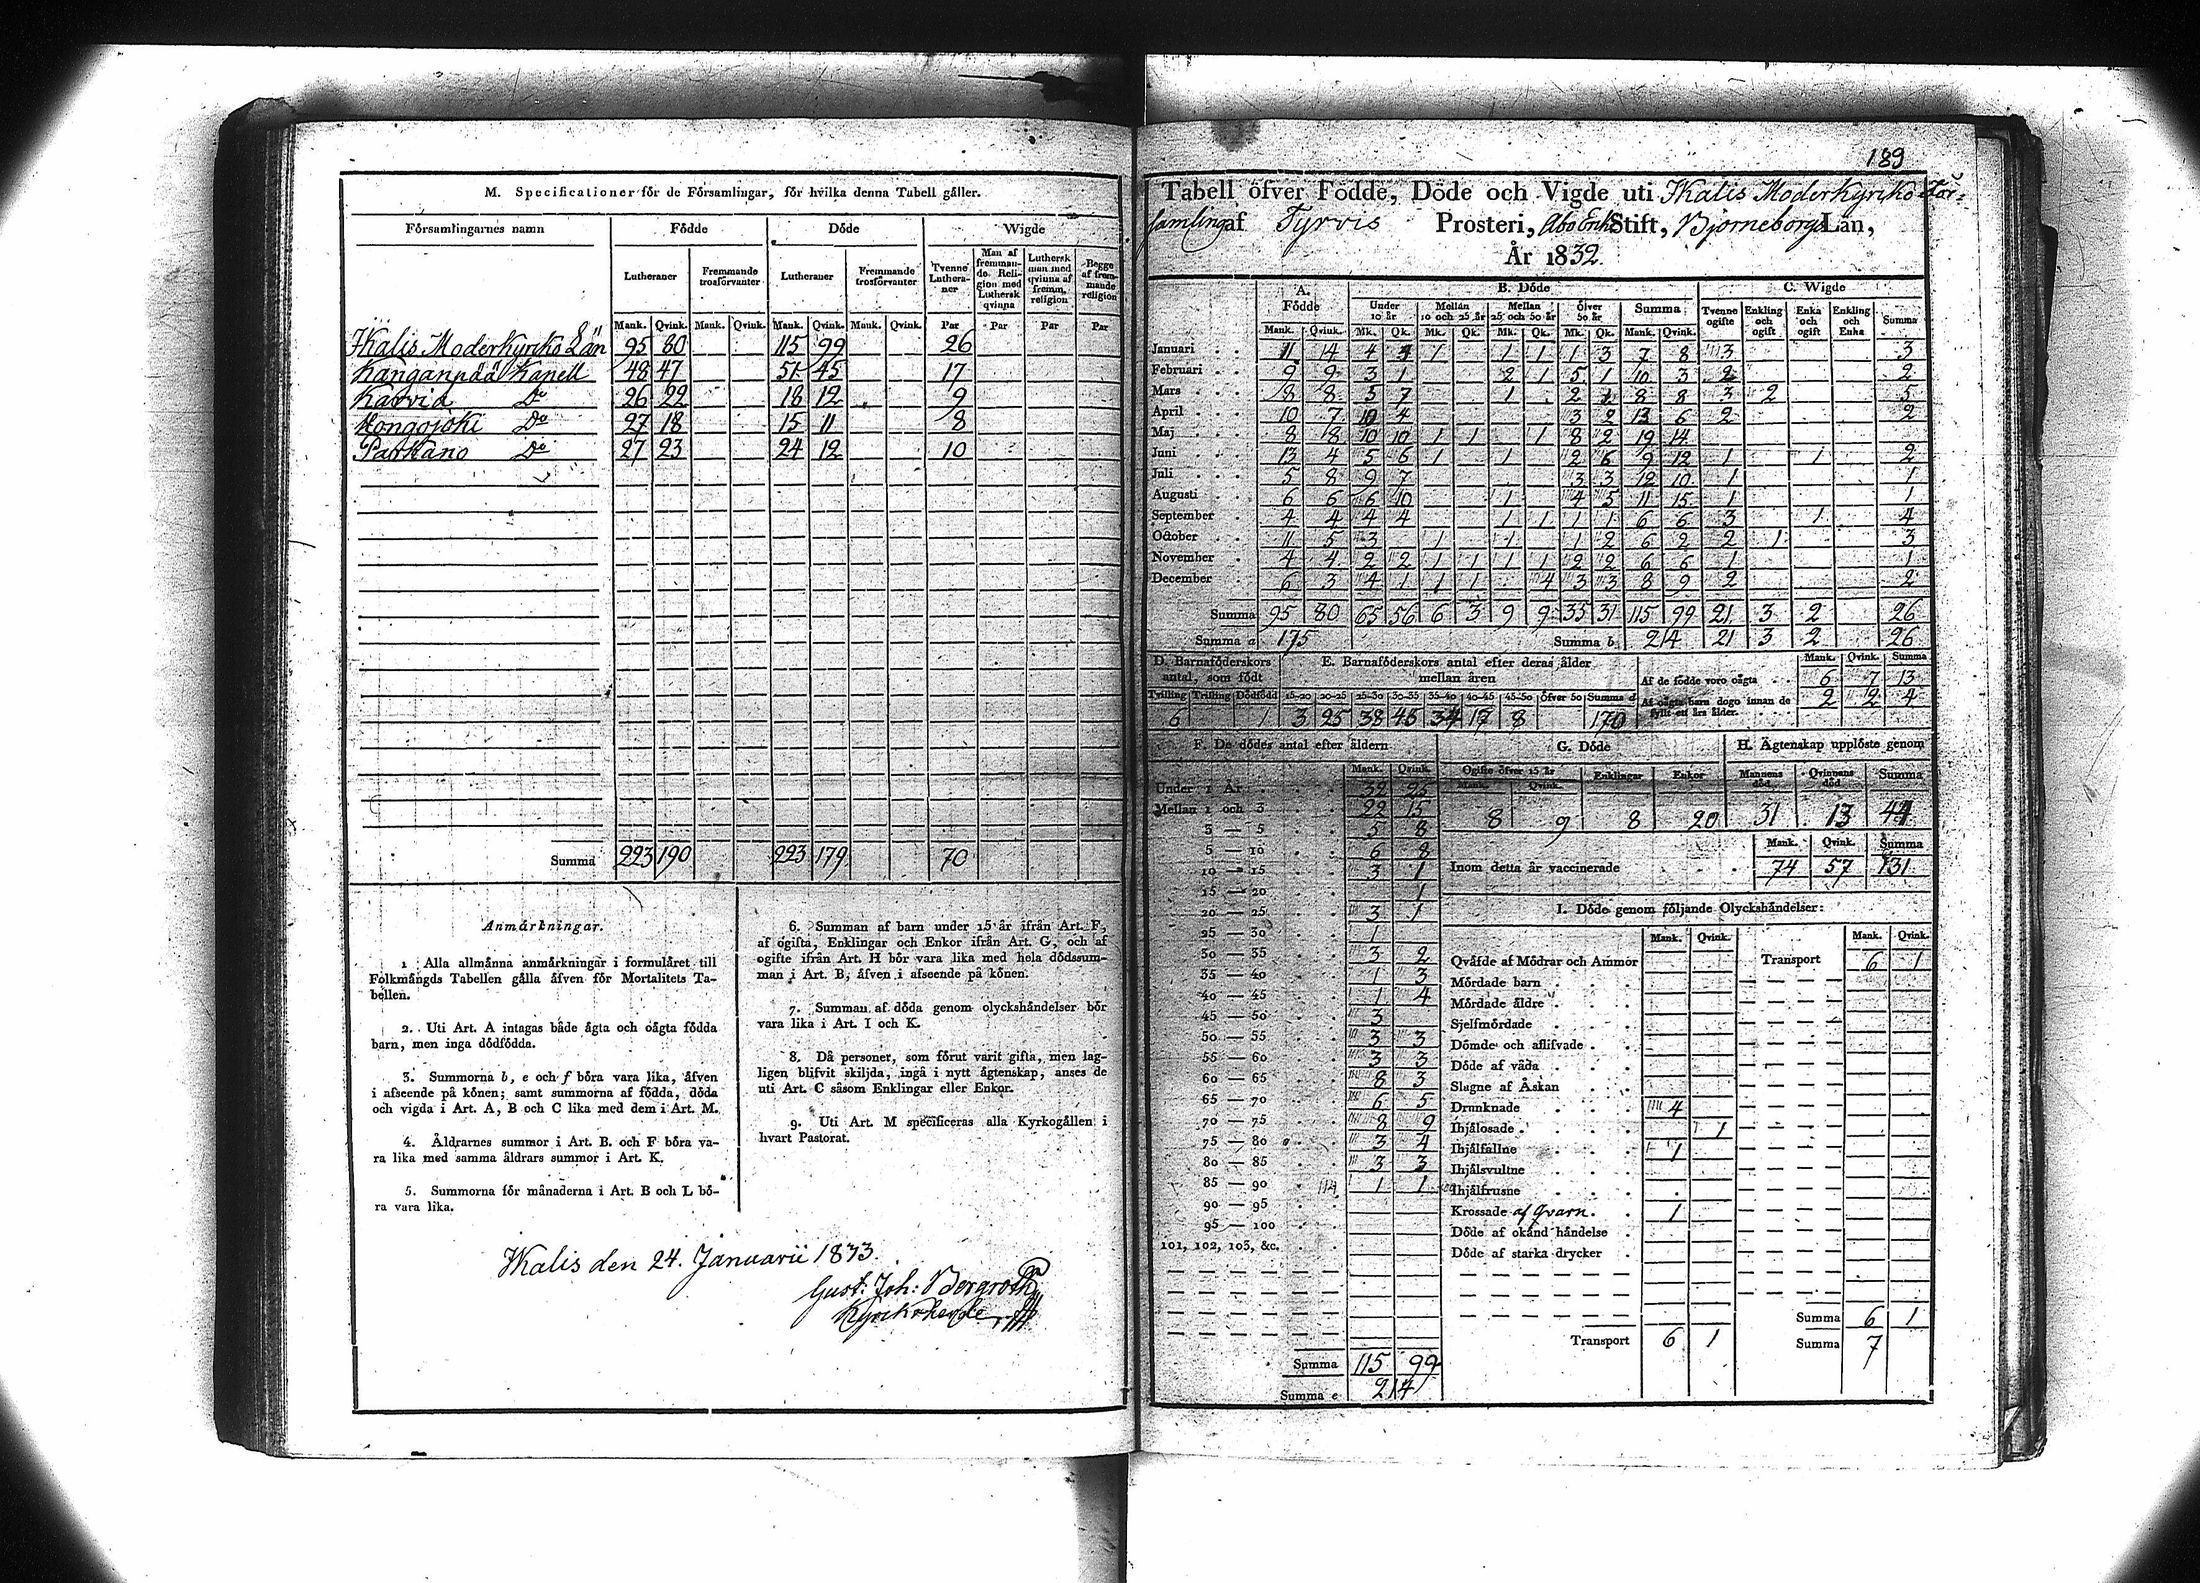 M. Specificationer för de Församlingar, för hvilka denna Tabell gäller.
Församlingarnes namn Födde Döde Wigde
Lutheraner Fremmande trosförvanter Lutheraner Fremmande trosförvanter Tvenne Lutheraner Man af fremmande Religion med Luthersk qvinna Luthersk man med qvinna af fremm. religion Begge af fremmande religion
Mank. Qvink. Mank. Qvink. Mank. Qvink. Mank. Qvink. Par Par Par Par
Ikalis Moderkyrko Län 95 80 115 99 26
Kanganpää Kapell 48 47 51 45 17
Karvia Do 26 22 18 12 9
Hongojoki Do 27 18 15 11 8
Parkano Do 27 23 24 12 10
Summa 223 190 223 179 70
Anmärkningar.
1 Alla allmänna anmärkningar i formuläret till
Folkmängds Tabellen gälla äfven för Mortalitets Ta-
bellen.
2. Uti Art. A intagas både ägta och oägta födda
barn, men inga dödfödda.
3. Summorna b, e och f böra vara lika, äfven
i afseende på könen; samt summorna af födda, döda
och vigda i Art. A, B och C lika med dem i Art. M.
4. Åldrarnes summor i Art. B. och F böra va-
ra lika med samma åldrars summor i Art. K.
5. Summorna för månaderna i Art. B och L bö-
ra vara lika.
6. Summan af barn under 15 år ifrån Art. F,
af ogifta, Enklingar och Enkor ifrån Art. G, och af
ogifte ifrån Art. H bör vara lika med hela dödssum-
man i Art. B, äfven i afseende på könen.
7. Summan af döda genom olyckshändelser bör
vara lika i Art. I och K.
8. Då personer, som förut varit gifta, men lag-
ligen blifvit skiljda, ingå i nytt ägtenskap, anses de
uti Art. C såsom Enklingar eller Enkor.
9. Uti Art. M specificeras alla Kyrkogällen i
hvart Pastorat.
Ikalis den 24. Januarii 1833.
Gust: Joh: Bergroth
Kyrkoherde
189
Tabell öfver Födde, Döde och Vigde uti Ikalis Moderkyrko För-
samling af Tyrvis Prosteri, Åbo Erke Stift, Björneborgs Län,
År 1832.
A. Födde B. Döde C. Wigde
Under 10 år Mellan 10 och 25 år Mellan 25 och 50 år Öfver 50 år Summa Tvenne ogifte Enkling och ogift Enka och ogift Enkling och Enka Summa
Mank. Qvink. Mk. Qk. Mk. Qk. Mk. Qk. Mk. Qk. Mank. Qvink.
Januari 11 14 4 3 1 1 1 1 3 7 8 3 3
Februari 9 9 3 1 2 1 5 1 10 3 2 2
Mars 8 8 5 7 1 2 1 8 8 3 2 5
April 10 7 10 4 3 2 13 6 2 2
Maj 8 8 10 10 1 1 1 8 2 19 14
Juni 13 4 5 6 1 1 2 6 9 12 1 1 2
Juli 5 8 9 7 3 3 12 10 1 1
Augusti 6 6 6 10 1 4 5 11 15 1 1
September 4 4 4 4 1 1 1 1 6 6 3 1 4
October 11 5 3 1 1 1 2 6 2 2 1 3
November 4 4 2 2 1 1 1 1 2 2 6 6 1 1
December 6 3 4 1 1 1 4 3 3 8 9 2 2
Summa 95 80 65 56 6 3 9 9 35 31 115 99 21 3 2 26
Summa a 175 Summa b 214 21 3 2 26
D. Barnaföderskors antal, som födt E. Barnaföderskors antal efter deras ålder mellan åren Mank. Qvink. Summa
Tvilling Trilling Dödfödd 15-20 20-25 25-30 30-35 35-40 40-45 45-50 Öfver 50 Summa d
6 1 3 25 38 45 34 17 8 170
Af de födde voro oägta 6 7 13
Af oägta barn dogo innan de fyllt ett års ålder. 2 2 4
F. De dödes antal efter åldern
Mank. Qvink.
Under 1 År 32 25
Mellan 1 och 3 22 15
3 — 5 5 8
5 — 10 6 8
10 — 15 3 1
15 — 20 1
20 — 25 3 1
25 — 30 1
30 — 35 3 2
35 — 40 1 3
40 — 45 1 4
45 — 50 3
50 — 55 3 3
55 — 60 3 3
60 — 65 8 3
65 — 70 6 5
70 — 75 8 9
75 — 80 3 4
80 — 85 3 3
85 — 90 114 1 1
90 — 95
95 — 100
101, 102, 103, &c.
Summa 115 99
Summa e 214
G. Döde
Ogifte öfver 15 år Enklingar Enkor
Mank. Qvink.
8 9 8 20
H. Ägtenskap upplöste genom
Mannens död Qvinnans död Summa
31 13 44
Mank. Qvink. Summa
Inom detta år vaccinerade 74 57 131
I. Döde genom följande Olyckshändelser:
Mank. Qvink. Mank. Qvink.
Qväfde af Mödrar och Ammor Transport 6 1
Mördade barn
Mördade äldre
Sjelfmördade
Dömde och aflifvade
Döde af våda
Slagne af Åskan
Drunknade 4
Ihjälosade 1
Ihjälfallne 1
Ihjälsvultne
Ihjälfrusne
Krossade af Qvarn. 1
Döde af okänd händelse
Döde af starka drycker
Summa 6 1
Transport 6 1 Summa 7